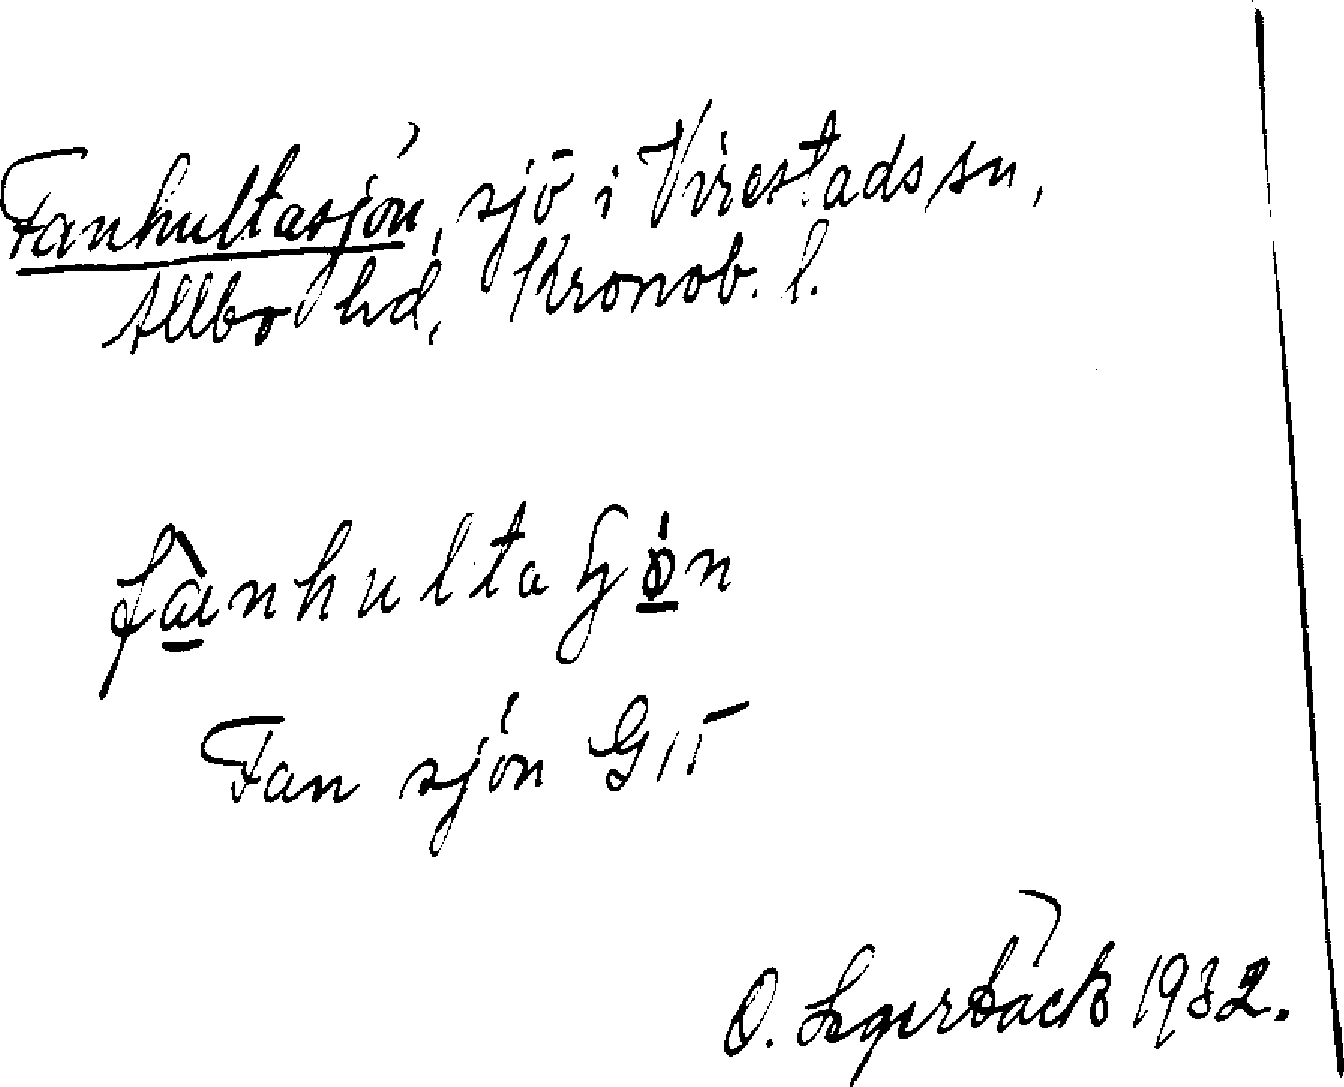 Fanhultasjön, sjö i Virestads sn,
Allbo hd, Kronob. l.
fànhulta
Fansjön
O. 1932.